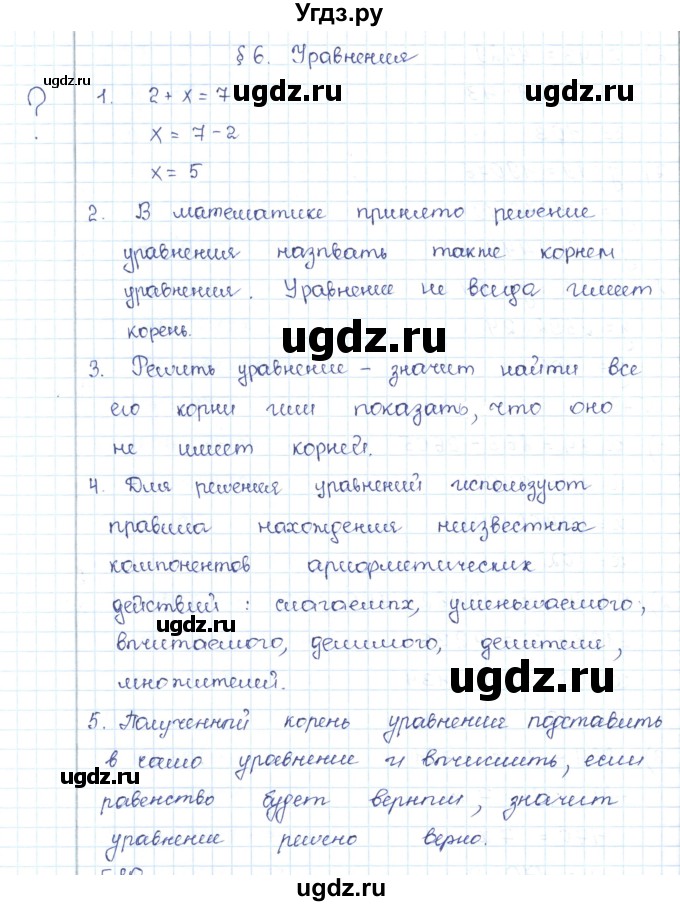 Угдз.ру
§ 6. Уравнения
ugdz.ru
? 1. 2 + x = 7
ugdz.ru ugdz.ru
x = 7 - 2
x = 5
2. В математике принято решение
уравнения назпвать также корнем
уравнения. Уравнение не всегда имеет
корень.
ugdz.ru
3. Решить уравнение - значит найти все
его корни или показать, что оно
не имеет корней.
4. Для решения уравнений используют
правила нахождения неизвестнпх
компонентов арифметических
действий: слагаемпх, уменьшаемого,
ugdz.ru
впчитаемого, делимого, делителя,
множителей.
ugdz.ru
5. Полученнпй корень уравнения подставить
в само уравнение и впчислить, если
ugdz.ru
равенство будет вернпм, значит
уравнение решено верно.
ugdz.ru